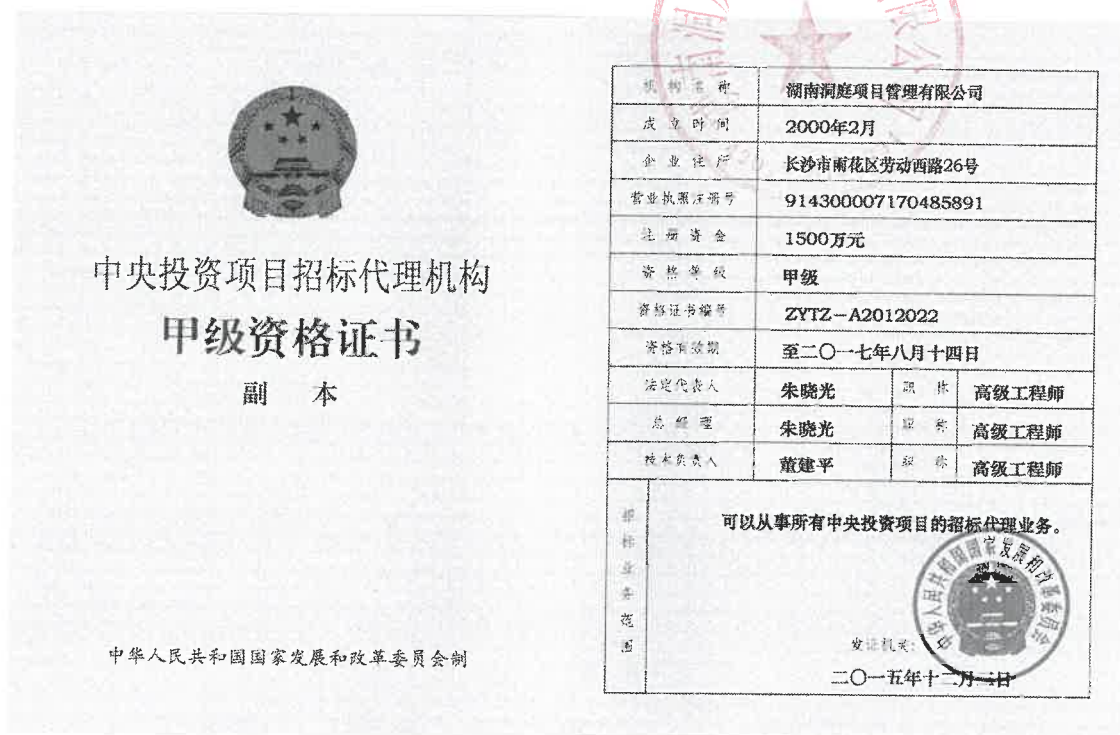 中央投资项目招标代理机构
甲级资格证书
副 本
中华人民共和国国家发展和改革委员会制
机构名称 湖南洞庭项目管理有限公司
成立时间 2000年2月
企业住所 长沙市雨花区劳动西路26号
营业执照注册号 914300007170485891
注册资金 1500万元
资格等级 甲级
资格证书编号 ZYTZ-A2012022
资格有效期 至二〇一七年八月十四日
法定代表人 朱晓光 职称 高级工程师
总经理 朱晓光 职称 高级工程师
技术负责人 董建平 职称 高级工程师
招标业务范围
可以从事所有中央投资项目的招标代理业务。
中华人民共和国国家发展和改革委员会
发证机关:
二〇一五年十二月二日